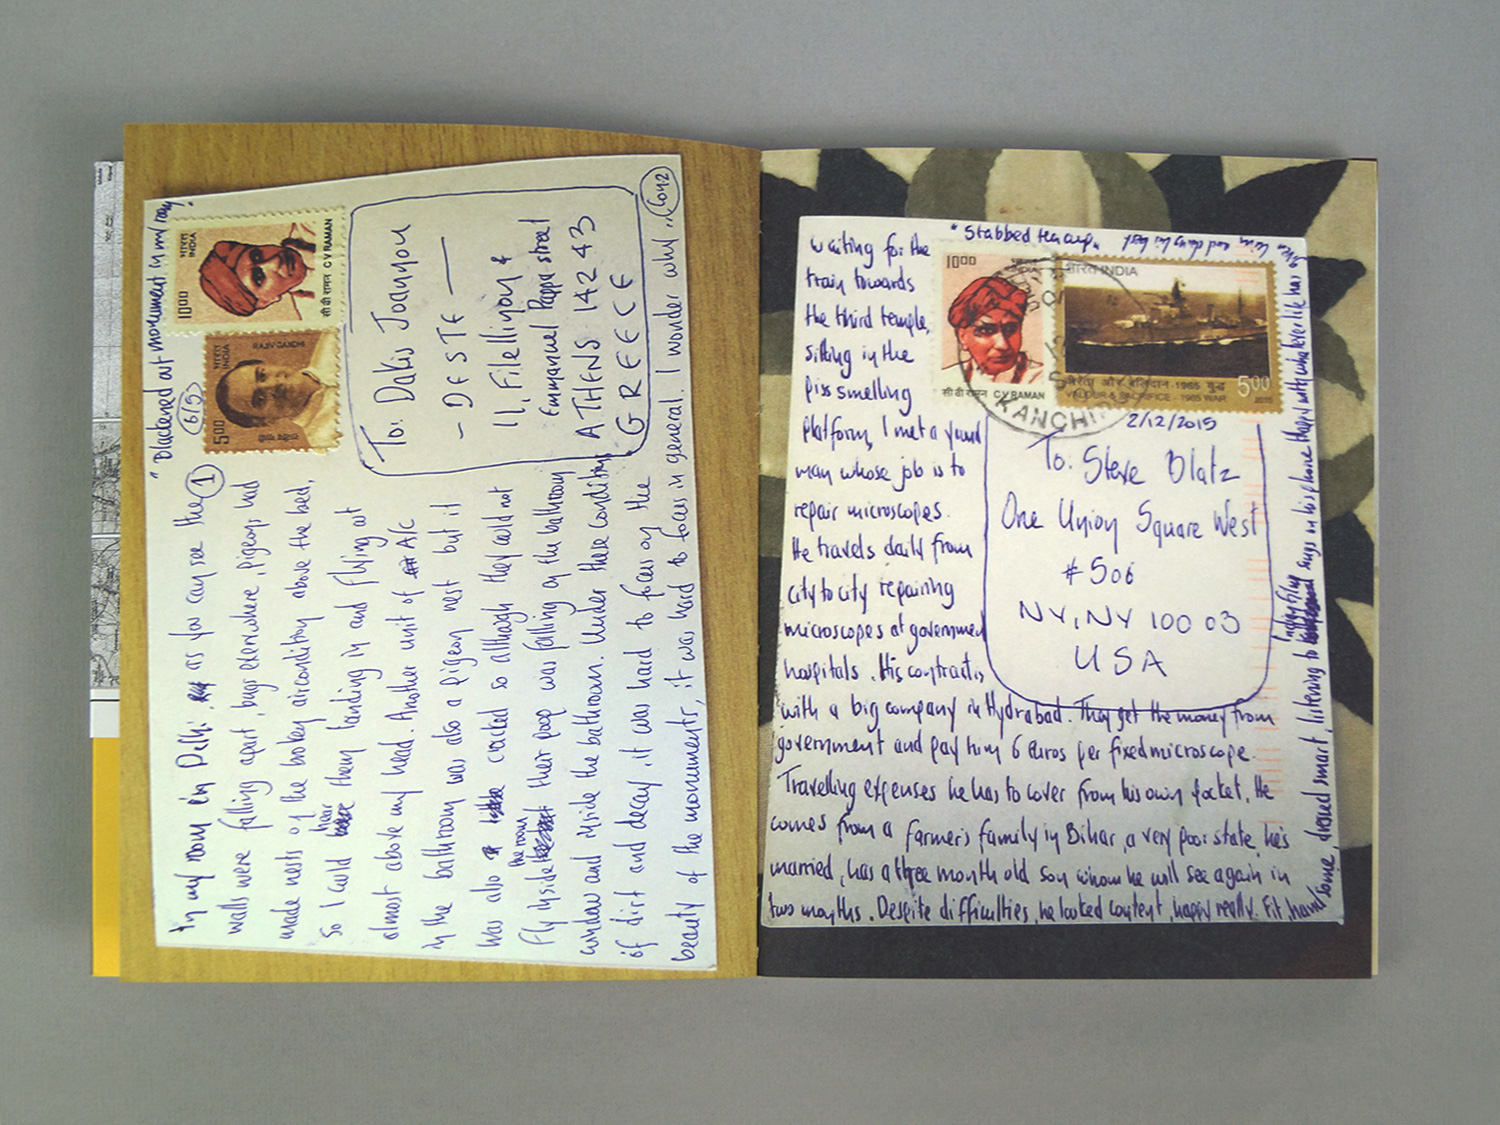 "Blackened out monument in my room"
1000
भारत
INDIA
सी वी रामन C V RAMAN
भारत
INDIA
RAJIV GANDHI
500
6(5)
To: Dakis Joannou
- DESTE -
11, Filellinon &
Emmanuel Pappa street
ATHENS 142 43
GREECE
In my room in Delhi as you can see the 1
walls were falling apart, bugs everwhere, pigeons had
made nests of the broken airconditioy above the bed,
so I could hear them landing in and flying out
almost above my head. Another unit of A/C
in the bathroom was also a pigeon nest but it
was also cracked so although they could not
fly inside the room their poop was falling on the bathroom
window and inside the bathroom. Under these conditions
of dirt and decay, it was hard to focus on the
beauty of the monuments, it was hard to focus in general. I wonder why...
"Stabbed
1000
सी वी रामन C V RAMAN
भारत INDIA
वीरता और बलिदान - 1965 युद्ध
VALOUR & SACRIFICE - 1965 WAR
500
2015
KANCHI
2/12/2015
To: Steve Blatz
One Union Square West
#506
NY, NY 100 03
USA
waiting for the
train towards
the third temple,
sitting in the
piss smelling
platform, I met a yound
man whose job is to
repair microscopes.
He travels daily from
city to city repairing
microscopes at governmen
hospitals. His contract is
with a big company in Hydrabad. They get the money from
government and pay him 6 euros per fixed microscope.
Travelling expenses he has to cover from his own pocket. He
comes from a farmer's family in Bihar, a very poor state, he's
married, has a three month old son whom he will see again in
two months. Despite difficulties, he looked content, happy really. Fit, hand/some, dressed smart, listening to
songs on his phone, happy with whatever life has to
give him and doing his best